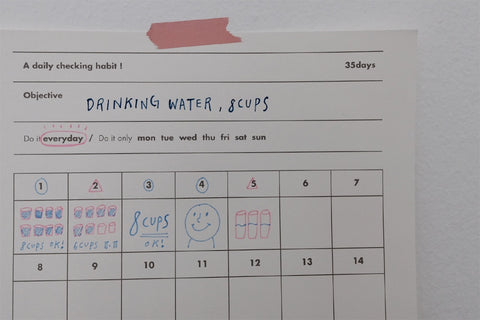 A daily checking habit !
35days
Objective
DRINKING WATER, 8CUPS
Do it everyday / Do it only mon tue wed thu fri sat sun
1 2 3 4 5 6 7
8CUPS OK!
6CUPS
8CUPS
OK!
8 9 10 11 12 13 14